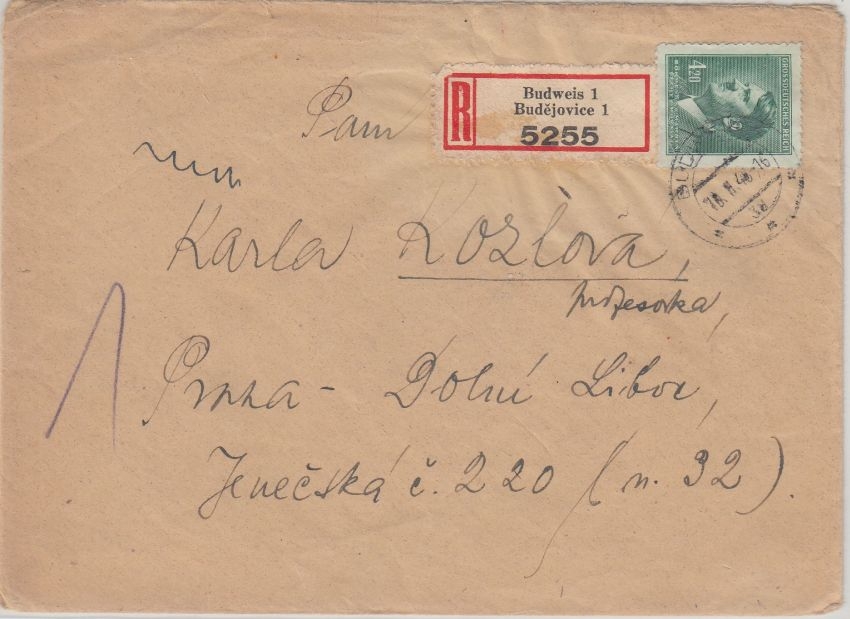 Paní
R
Budweis 1
Budějovice 1
5255
GROSSDEUTSCHES REICH
4.20
Karla Kozlová,
profesorka,
Praha - Dolní Liboc,
Jenečská č. 220 (n. 32).